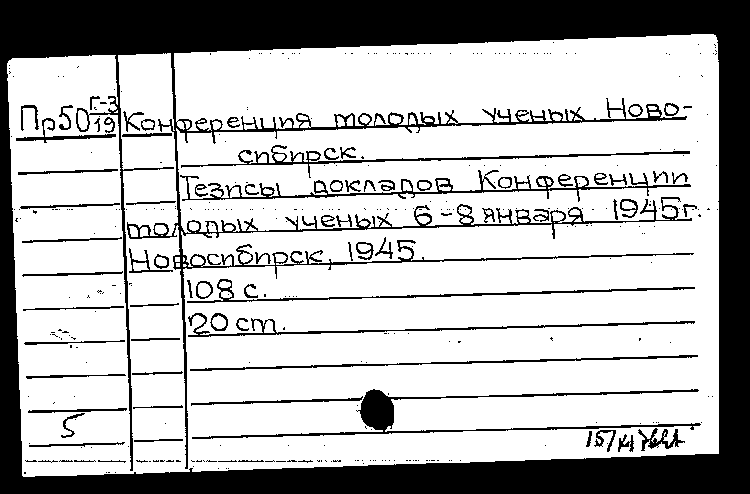 Пр50 Г-3/19 Конференция молодых ученых. Ново-
сибирск.
Тезисы докладов Конференции
молодых ученых 6-8 января 1945г.
Новосибирск, 1945.
108 с.
20 cm.
5
15/XI